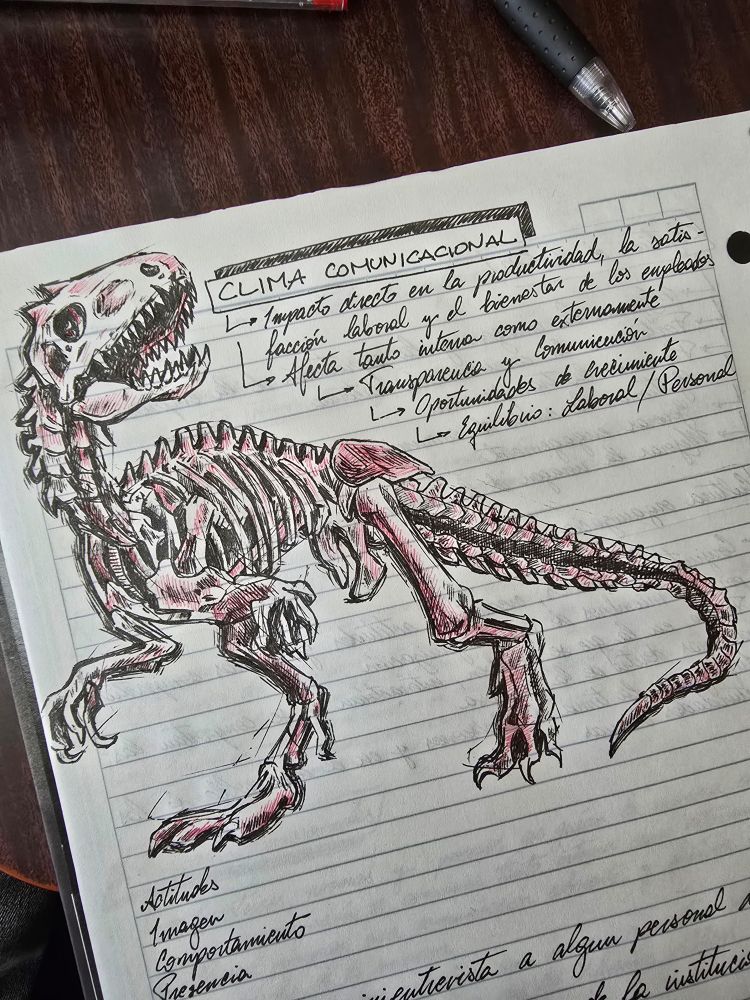 CLIMA COMUNICACIONAL
Impacto directo en la productividad, la satis-
facción laboral y el bienestar de los empleados
Afecta tanto interna como externamente
Transparencia y Comunicación
Oportunidades de crecimiento
Equilibrio: Laboral / Personal
Actitudes
Imagen
Comportamiento
Presencia
entrevista a algun personal
de la institucio